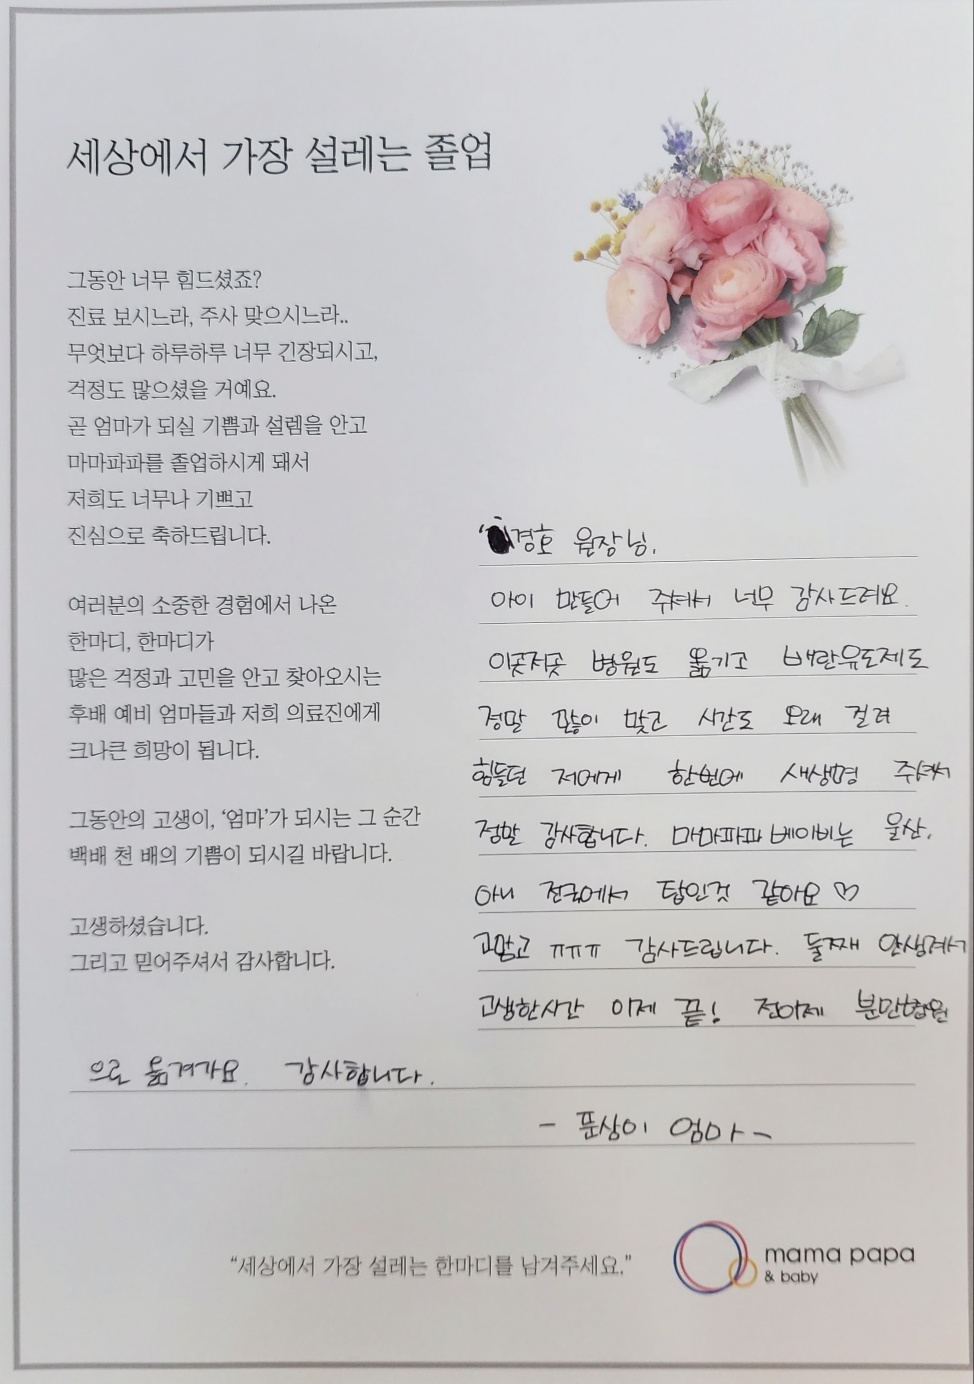 세상에서 가장 설레는 졸업
그동안 너무 힘드셨죠?
진료 보시느라, 주사 맞으시느라..
무엇보다 하루하루 너무 긴장되시고,
걱정도 많으셨을 거예요.
곧 엄마가 되실 기쁨과 설렘을 안고
마마파파를 졸업하시게 돼서
저희도 너무나 기쁘고
진심으로 축하드립니다.
여러분의 소중한 경험에서 나온
한마디, 한마디가
많은 걱정과 고민을 안고 찾아오시는
후배 예비 엄마들과 저희 의료진에게
크나큰 희망이 됩니다.
그동안의 고생이, '엄마'가 되시는 그 순간
백배 천 배의 기쁨이 되시길 바랍니다.
고생하셨습니다.
그리고 믿어주셔서 감사합니다.
경호 원장님.
아이 만들어 주셔서 너무 감사드려요.
이곳저곳 병원도 옮기고 배란유도제도
정말 많이 맞고 시간도 오래 걸려
힘들던 저에게 한번에 새생명 주셔서
정말 감사합니다. 마마파파베이비는 울산,
아니 전국에서 탑인것 같아요 ♡
고맙고 ㅠㅠㅠ 감사드립니다. 둘째 안생겨서
고생한시간 이제 끝! 전이제 분만병원
으로 옮겨가요. 감사합니다.
- 푼상이 엄마 -
"세상에서 가장 설레는 한마디를 남겨주세요."
mama papa
& baby